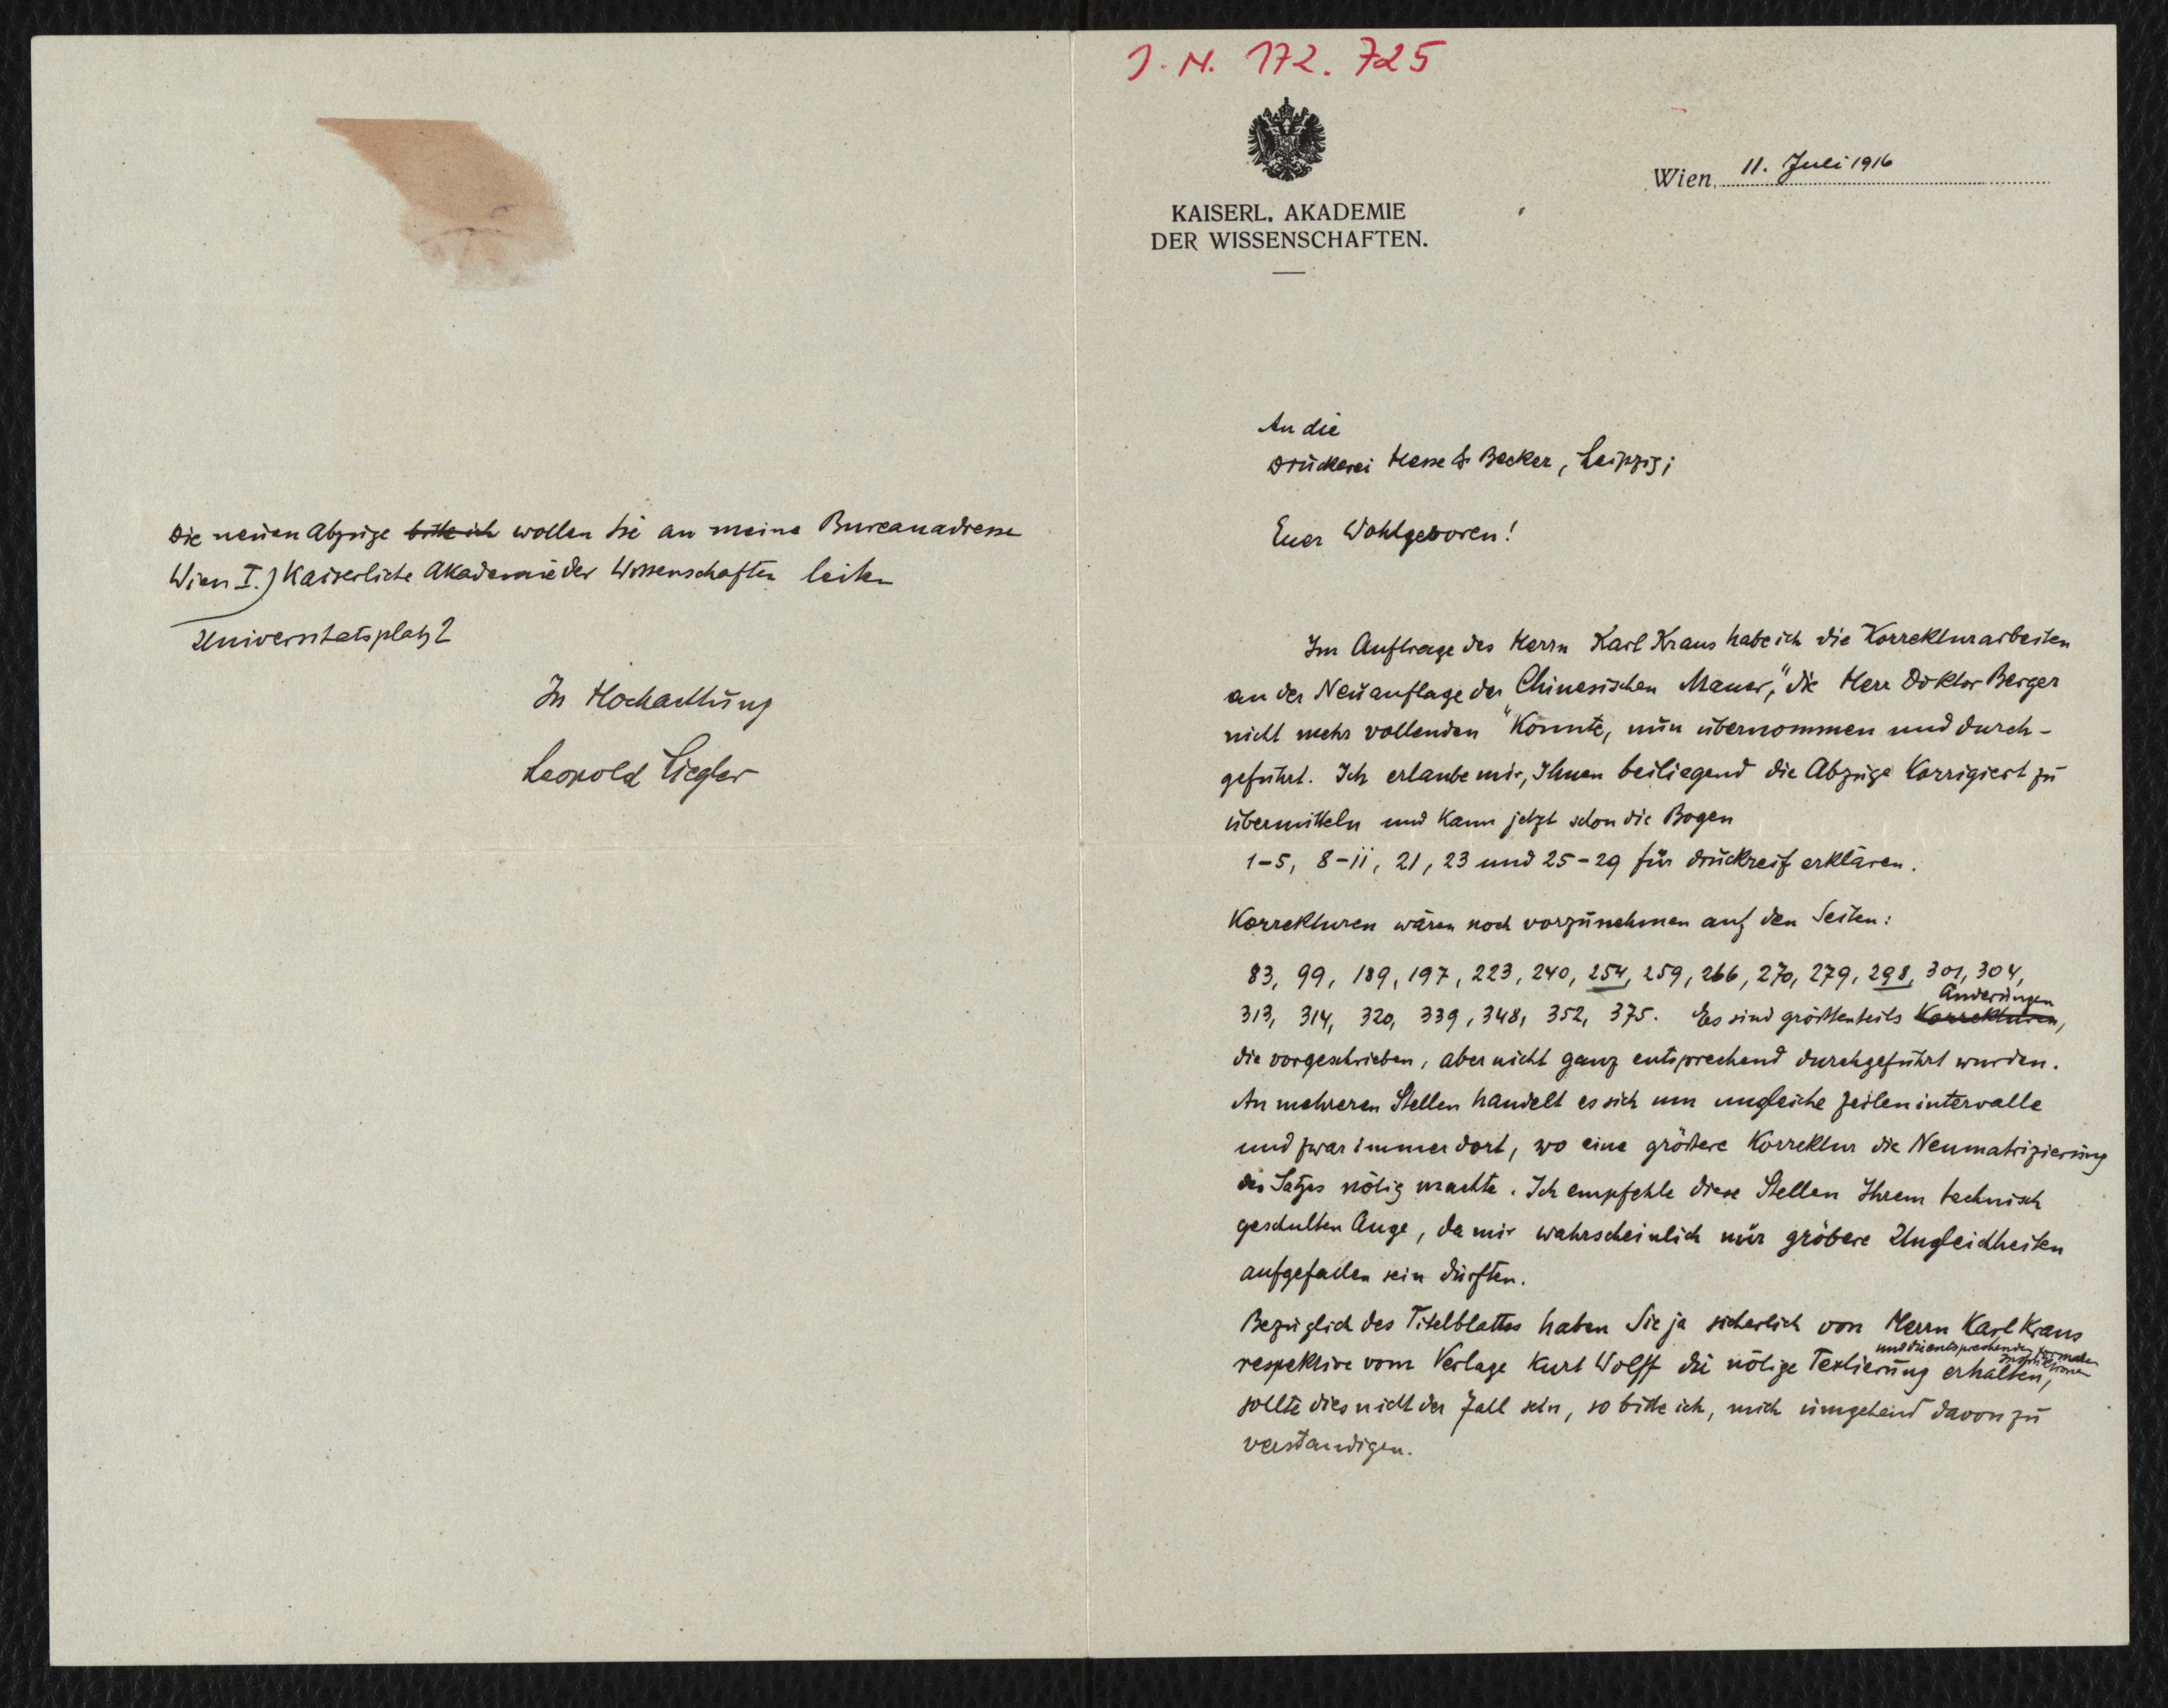 J. N. 172. 725
KAISERL. AKADEMIE
DER WISSENSCHAFTEN.
Wien, 11. Juli 1916
An die
Druckerei Hesse & Becker, Leipzig;
Euer Wohlgeboren!
Im Auftrage des Herrn Karl Kraus habe ich die Korrekturarbeiten
an der Neuauflage der „Chinesischen Mauer“, die Herr Doktor Berger
nicht mehr vollenden konnte, nun übernommen und durch-
geführt. Ich erlaube mir, Ihnen beiliegend die Abzüge korrigiert zu
übermitteln und kann jetzt schon die Bogen
1–5, 8–11, 21, 23 und 25–29 für druckreif erklären.
Korrekturen wären noch vorzunehmen auf den Seiten:
83, 99, 189, 197, 223, 240, 254, 259, 266, 270, 279, 298, 301, 304,
Änderungen
313, 314, 320, 339, 348, 352, 375. Es sind größtenteils Korrekturen,
die vorgeschrieben, aber nicht ganz entsprechend durchgeführt wurden.
An mehreren Stellen handelt es sich um ungleiche Zeilenintervalle
und zwar immer dort, wo eine größere Korrektur die Neumatrizierung
des Satzes nötig machte. Ich empfehle diese Stellen Ihrem technisch
geschulten Auge, da mir wahrscheinlich nur gröbere Ungleichheiten
aufgefallen sein dürften.
Bezüglich des Titelblattes haben Sie ja sicherlich von Herrn Karl Kraus
und die entsprechenden formalen
Instruktionen
respektive vom Verlage Kurt Wolff die nötige Textierung erhalten,
sollte dies nicht der Fall sein, so bitte ich, mich umgehend davon zu
verständigen.
Die neuen Abzüge bitte ich wollen Sie an meine Bureauadresse
Wien I.) Kaiserliche Akademie der Wissenschaften leiten
Universitätsplatz 2
In Hochachtung
Leopold Liegler